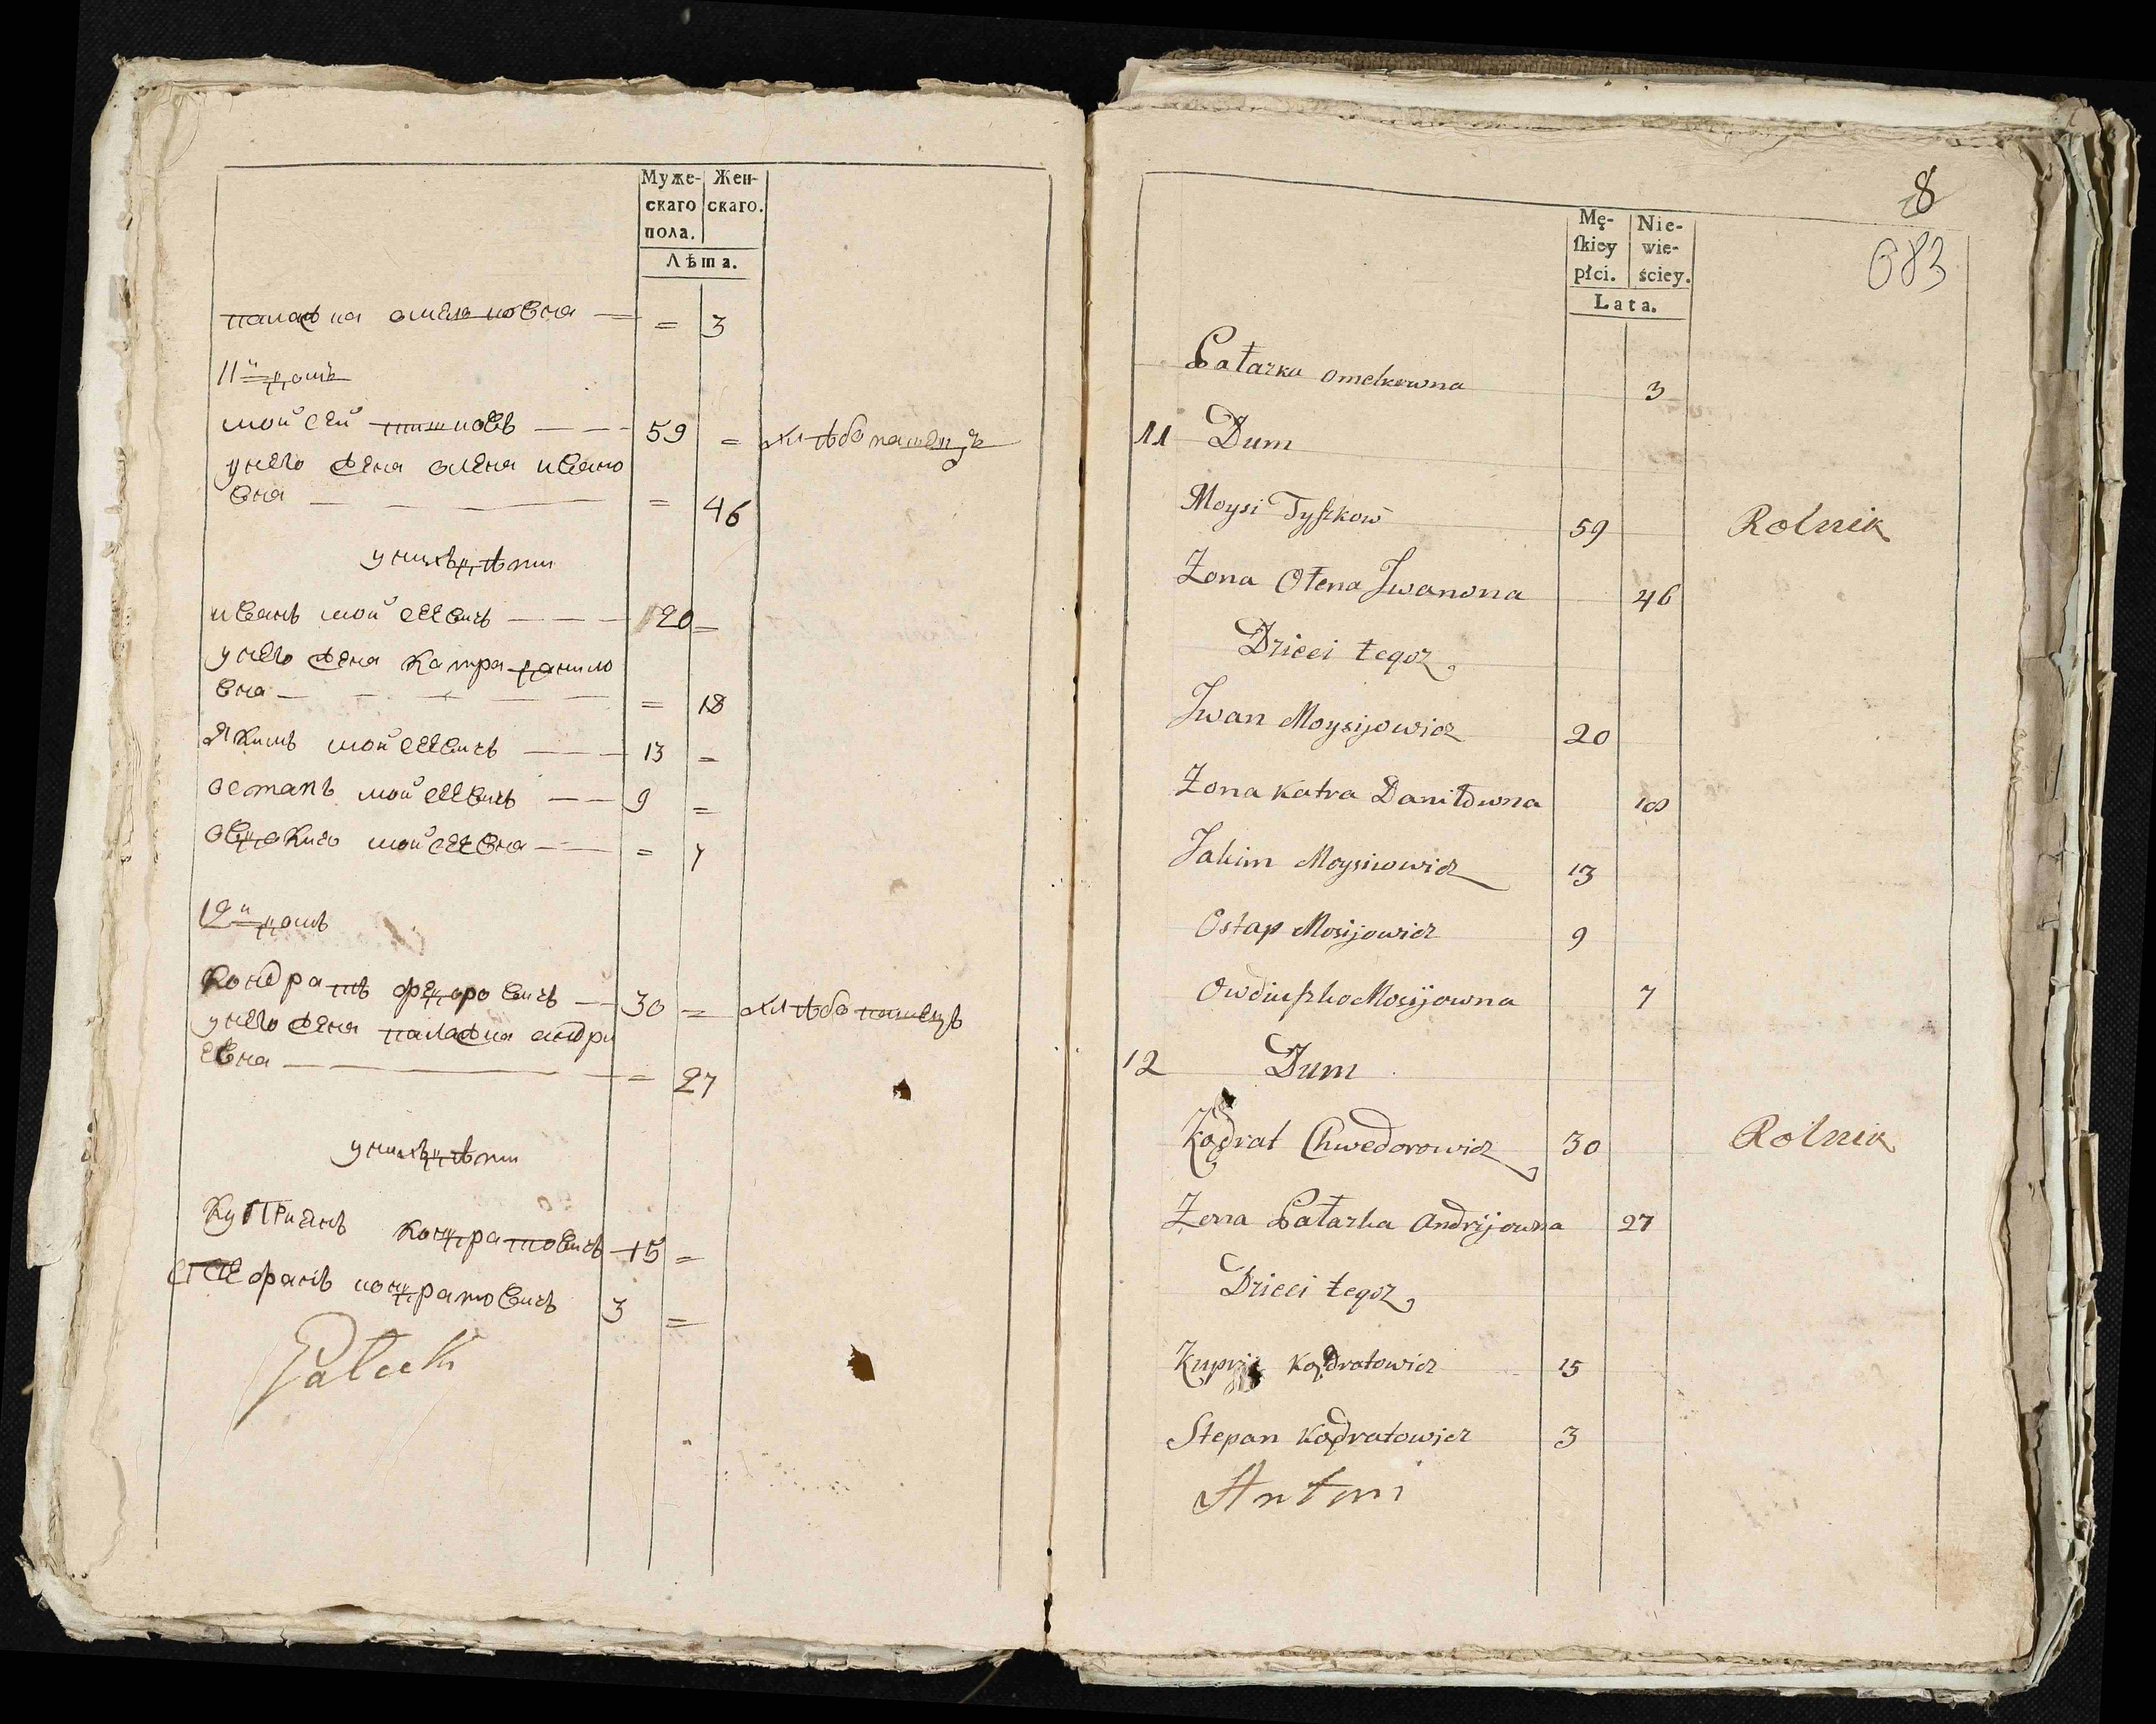 Муже-
скаго
пола.
Жен-
скаго.
Лѣта.
палажка омелковна — = 3
11й домъ
мойсей тишковъ — — 59 = хлѣбопашецъ
унего жена олена ивано
вна — = 46
унихъ дѣти
иванъ мойсеевичъ — — 20 =
унего жена катра данило
вна — = 18
Якимъ мойсеевичъ — — 13 =
остапъ мойсеевичъ — — 9 =
мойсеевна — — = 7
12й домъ
Кондратъ федоровичъ — 30 = хлѣбопашецъ
унего жена палажка андри
евна — = 27
унихъ дѣти
Куприянъ кондратовичъ 15 =
стефанъ кондратовичъ 3 =
8
683
Mę-
ſkiey
płci.
Nie-
wie-
ściey.
Lata.
Pałazka Omelkowna 3
11 Dum
Moysi Tyszkow 59 Rolnik
Zona Ołena Jwanowna 46
Dzieci tegoz
Jwan Moysijowicz 20
Zona Katra Daniłowna 18
Jakim Moysiiowicz 13
Ostap Mosijowicz 9
Owdiuszka Mosijowna 7
12 Dum
Kądrat Chwedorowicz 30 Rolnik
Zona Pałazka Andrijowna 27
Dzieci tegoz
Kądratowicz 15
Stepan Kądratowicz 3
Antoni